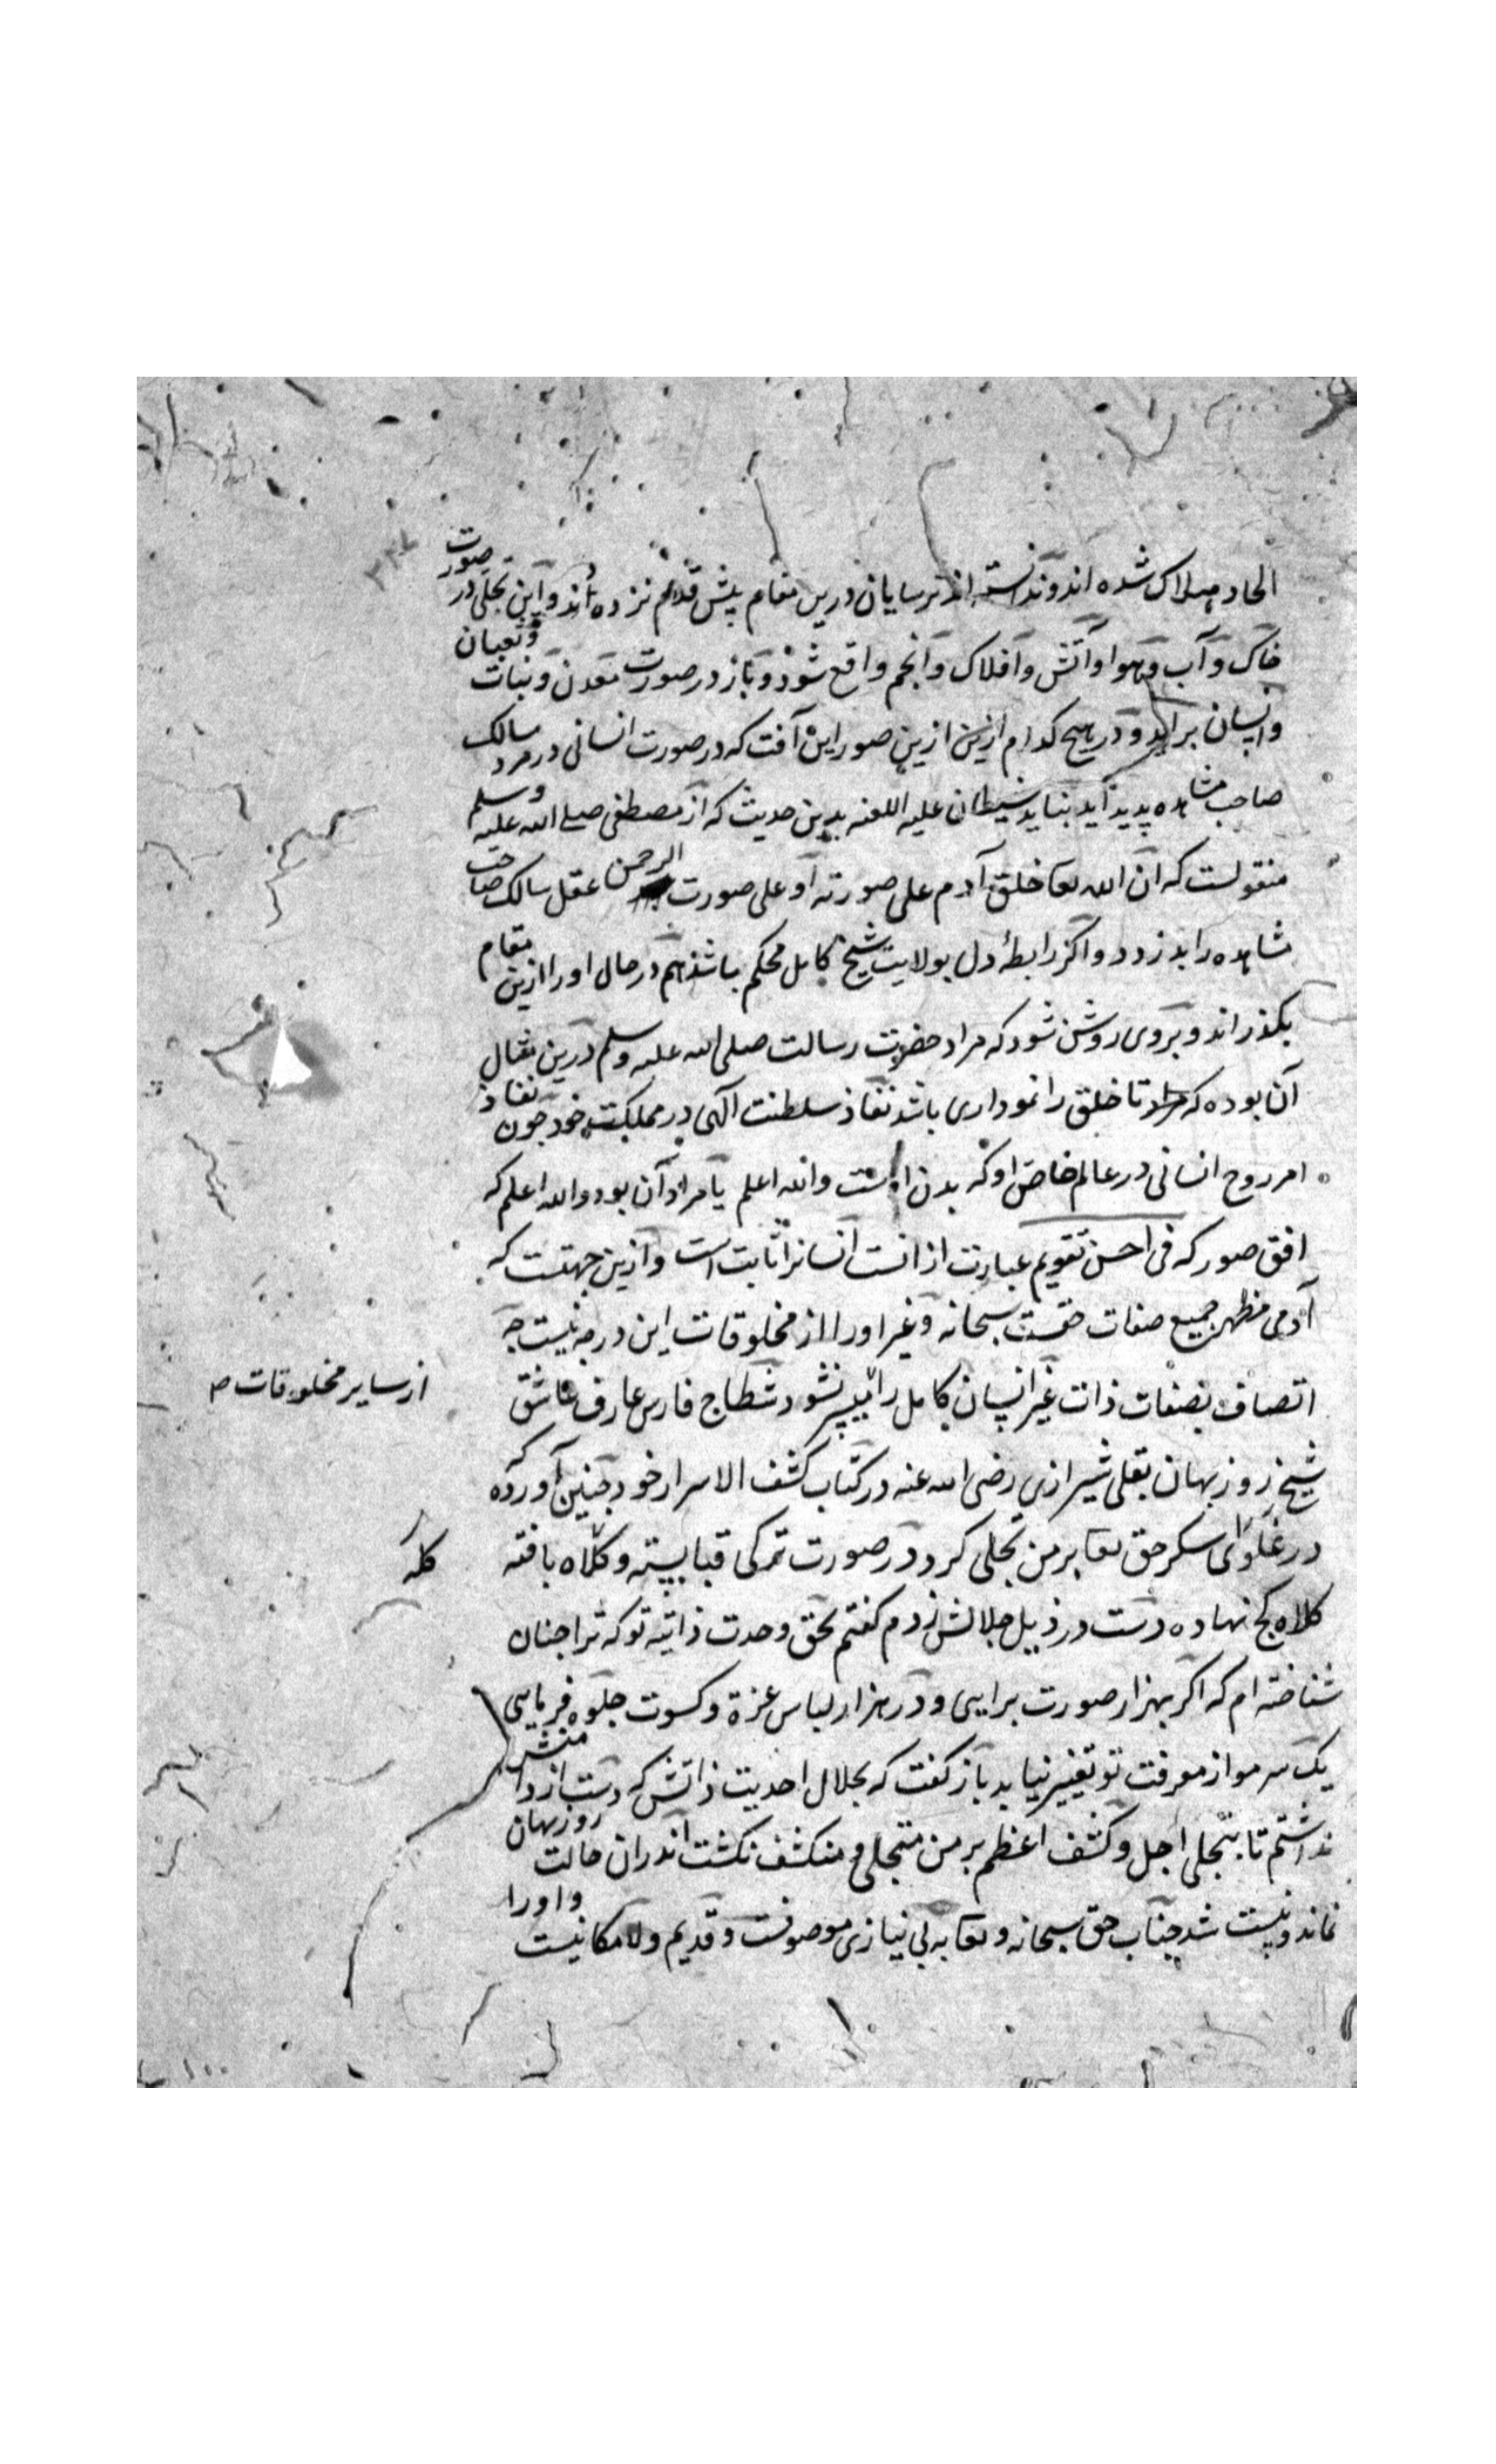 الحاد هلاک شده اند و ندانسته اند ترسایان درین مقام پیش قدم نزده اند و این تجلی در صورت
خاک و آب و هوا و آتش و افلاک و انجم واقع شود و باز در صورت معدن و نبات و ثعبان
و انسان براید و در هیچ کدام ازین صور این آفت که در صورت انسانی در مرد سالک
صاحب مشاهده پدید آید نیاید شیطان علیه اللعنه بدین حدیث که از مصطفی صلی الله علیه وسلم
منقولست که ان الله تعا خلق آدم علی صورته او علی صورت الرحمن عقل سالک صاحب
مشاهده را بدزدد و اگر رابطهٔ دل بولایت شیخ کامل محکم باشد هم در حال او را ازین مقام
بگذراند و بروی روشن شود که مراد حضرت رسالت صلی الله علیه وسلم درین مثال
آن بوده که تا خلق را نموداری باشد نفاذ سلطنت آلهی در مملکت خود چون نفاذ
امر روح انسانی در عالم خاص او که بدن است والله اعلم یا مراد آن بود والله اعلم که
افق صور که فی احسن تقویم عبارت از انست انسانرا ثابت است و ازین جهتست که
آدمی مظهر جمیع صفات حقست سبحانه و غیر او را از مخلوقات این درجه نیست چه
اتصاف بصفات ذات غیر انسان کامل را میسر نشود شطاح فارس عارف عاشق
از سایر مخلوقات ص
شیخ روزبهان بقلی شیرازی رضی الله عنه در کتاب کشف الاسرار خود چنین آورده که
در غلوای سکر حق تعا بر من تجلی کرد در صورت ترکی قبا بسته و کلاه بافته
کله
کلاه کج نهاده دست در ذیل جلالش زدم گفتم بحق وحدت ذاتیه تو که ترا چنان
شناخته ام که اگر بهزار صورت برایی و در هزار لباس عزة و کسوت جلوه فرمایی
یک سر مو از معرفت تو تغییر نیابد باز گفت که بجلال احدیت ذاتش که دست از دامنش
نداشتم تا بتجلی اجل و کشف اعظم بر من متجلی و منکشف نکشت اندران حالت روزبهان
نماند و نیست شد جناب حق سبحانه و تعا به بی نیازی موصوفست و قدیم و لامکانیست و اورا